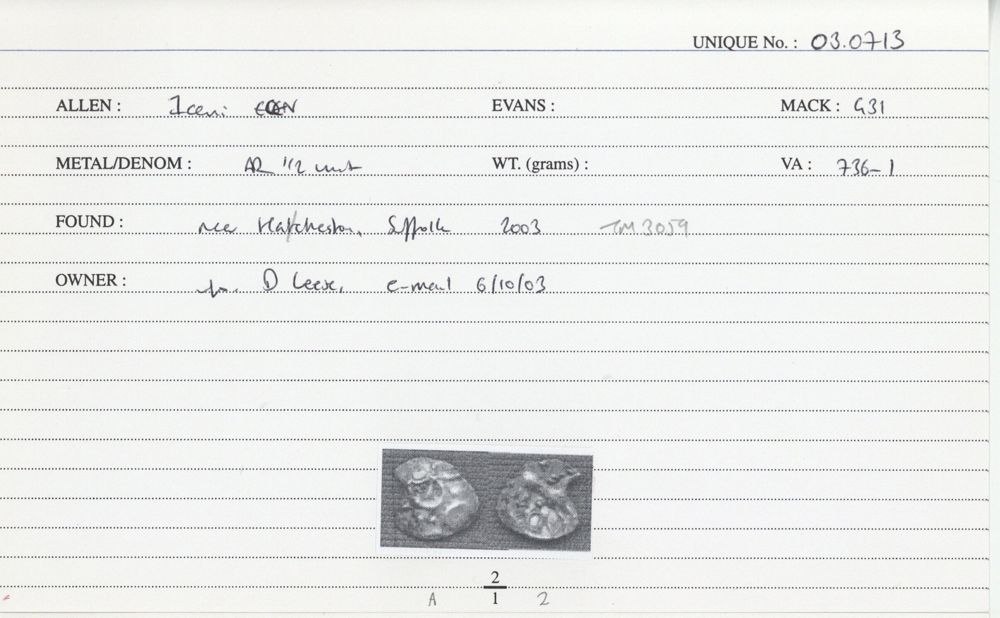 UNIQUE No. : 03.0713
ALLEN : Iceni EVANS : MACK : 431
METAL/DENOM : AR 1/2 unit WT. (grams) : VA : 736-1
FOUND : near Hatcheston, Suffolk 2003 TM 3059
OWNER : D Leese, e-mail 6/10/03
2
A 1 2